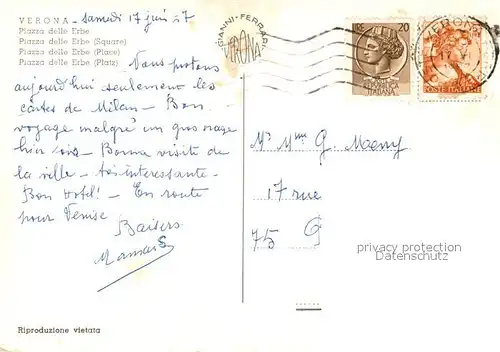 VERONA - samedi 17 juin 67
Piazza delle Erbe
Piazza delle Erbe (Square)
Piazza delle Erbe (Place)
Piazza delle Erbe (Platz)
Vous postons
aujourd'hui seulement les
cartes de Milan - Bon
voyage malgré un gros orage
hier soir - Bonne visite de
la ville - très intéressante -
Bon Hotel! - En route
pour Venise
Baisers
Riproduzione vietata
GIANNI-FERRARI
VERONA
20
REPUBBLICA
ITALIANA
VERONA
POSTE ITALIANE
Mr Mme G
17 rue
75
privacy protection
Datenschutz